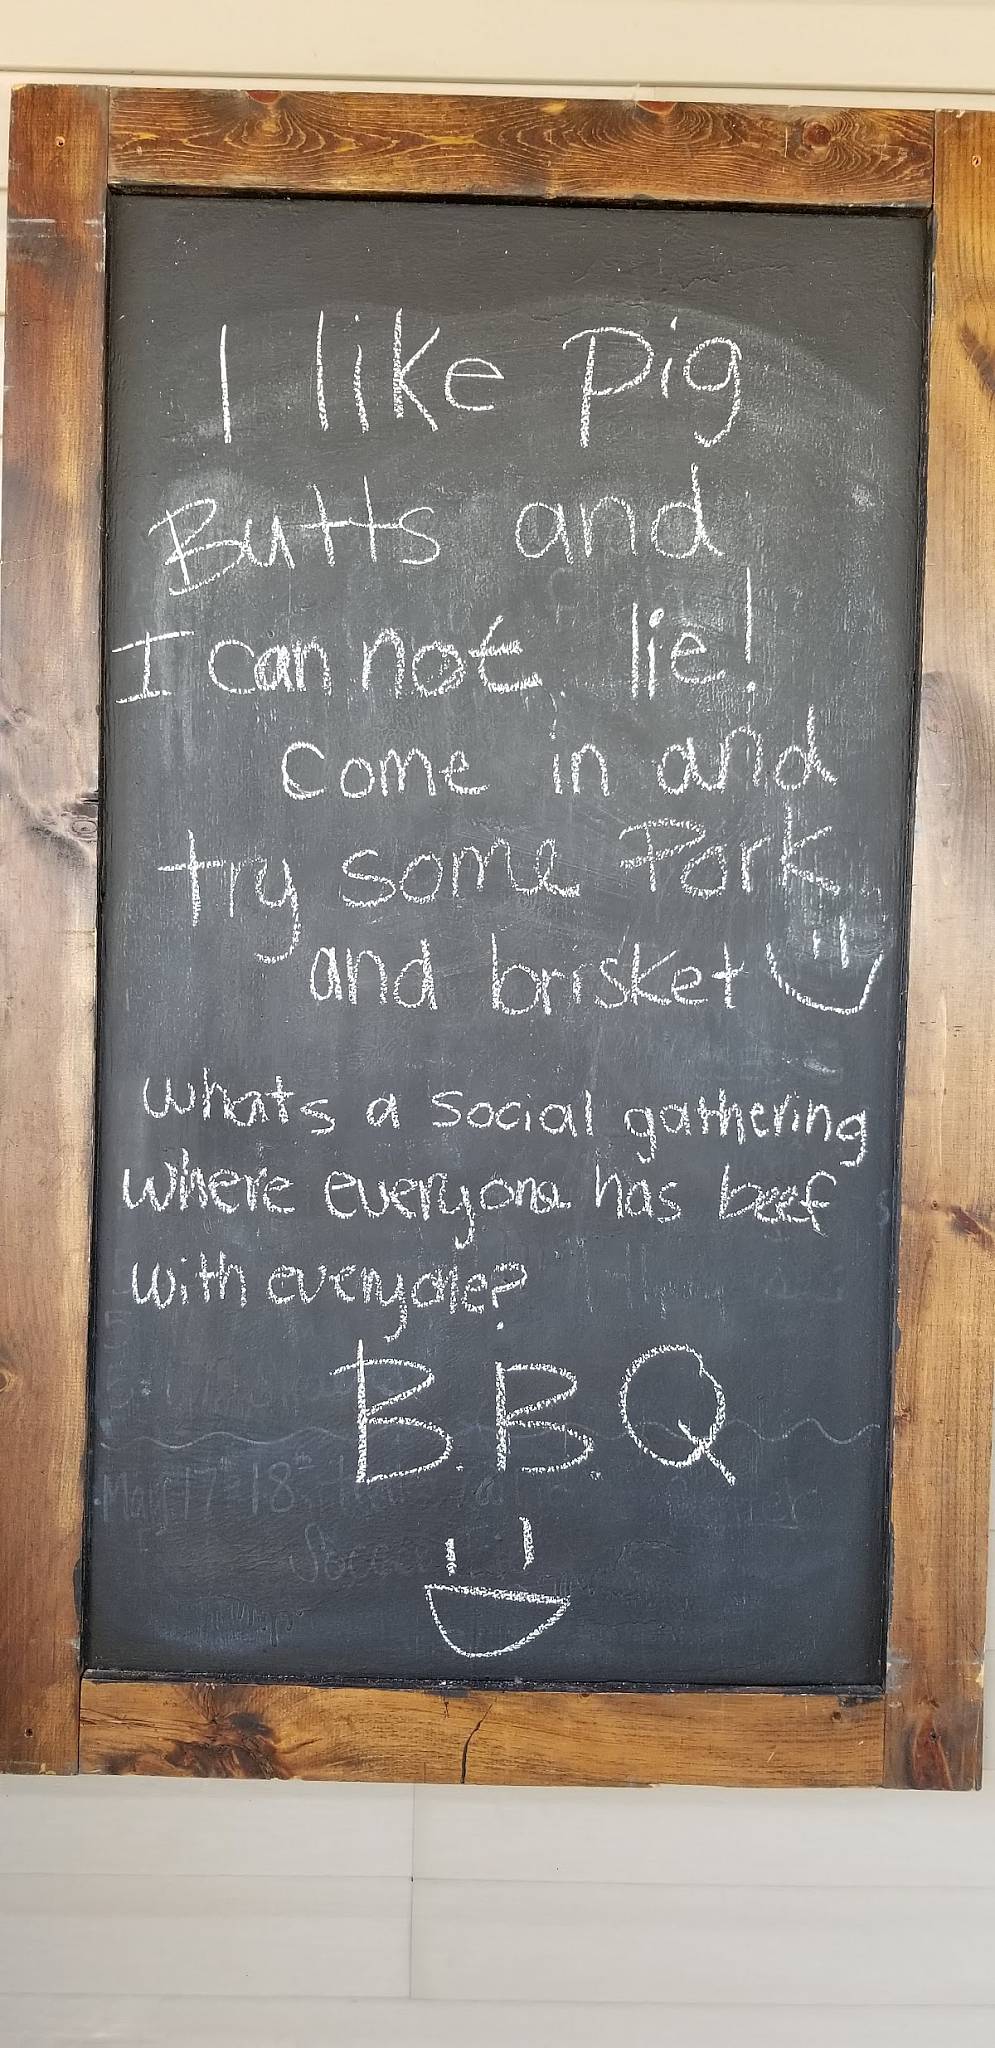 I like Pig
Butts and
I can not lie!
come in and
try some Pork
and brisket
whats a social gathering
where everyone has beef
with everyone?
B.B.Q
May 17th 18th